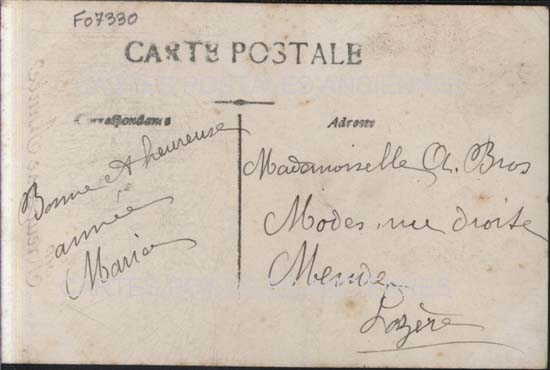 Fo7330
CARTE POSTALE
CARTES POSTALES ANCIENNES
Correspondance
Adresse
Bonne et heureuse
année
Maria
Mademoiselle A. Bros
Modes, rue droite
Mende
Lozère